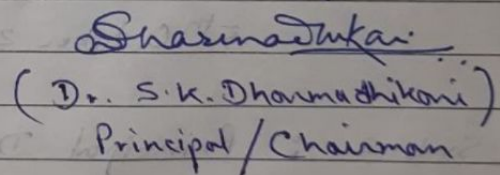 Dharmadhikari
(Dr. S.K. Dharmadhikari)
Principal/Chairman